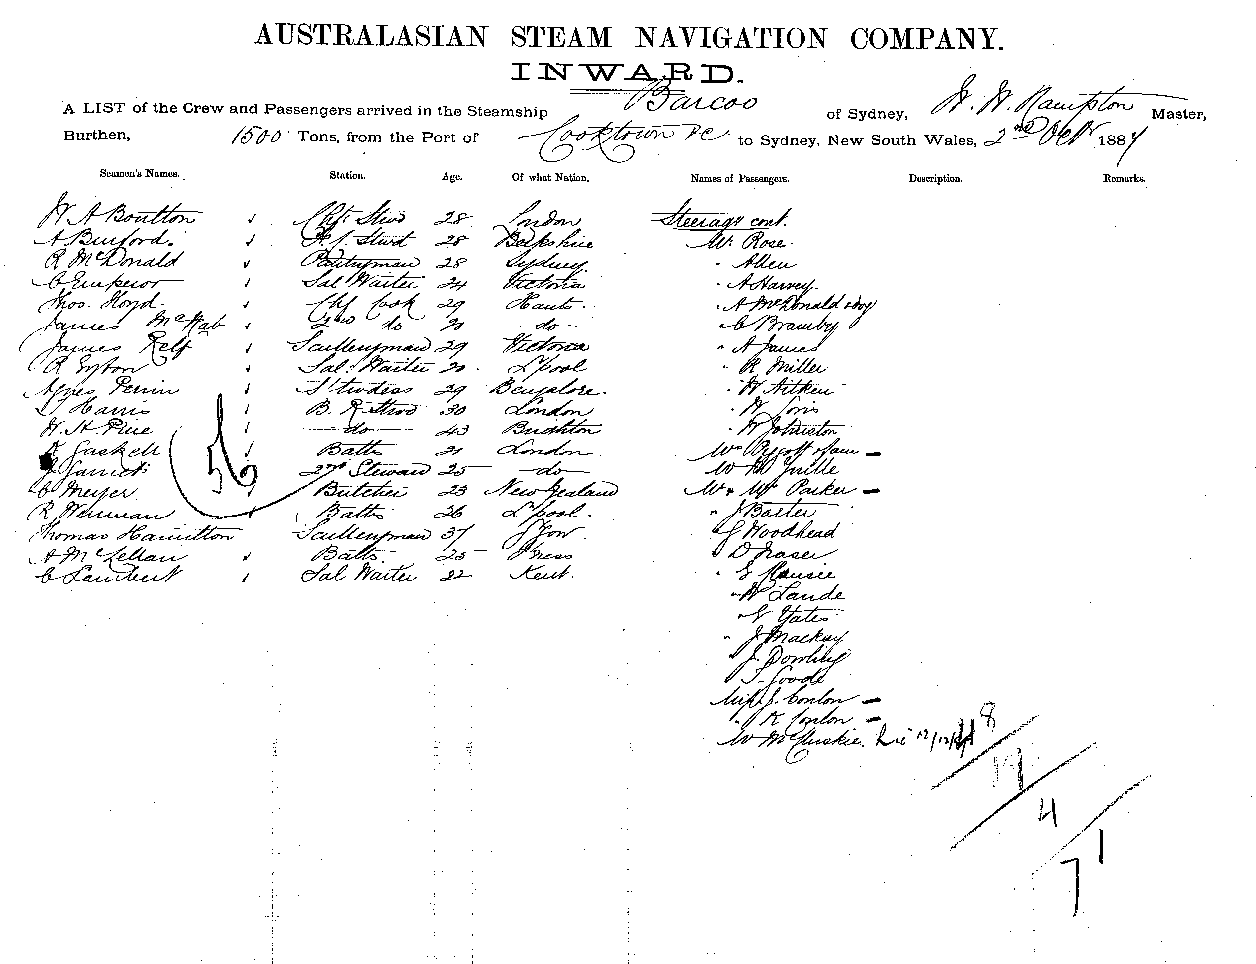 AUSTRALASIAN STEAM NAVIGATION COMPANY.
INWARD.
A LIST of the Crew and Passengers arrived in the Steamship Barcoo of Sydney, W. W. Hampton Master,
Burthen, 1500 Tons, from the Port of Cooktown &c to Sydney, New South Wales, 2nd Octr 1887
Seamen's Names. Station. Age. Of what Nation. Names of Passengers. Description. Remarks.
W A Boulton Chf Stwd 28 London
A Binford 28 Berkshire
R McDonald Pantryman 28 Sydney
C Emperor Sal Waiter 24 Victoria
Thos. Floyd Chf Cook 29 Hants
James McNab 2nd do do
James Relf Sculleryman 29 Victoria
R Eyton Sal. Waiter 20 L'pool
Agnes Perrin Stwdess 29 Bangalore
Harris B. R Stwd 30 London
W. H. Pine do 43 Brighton
Gaskell Batts 21 London
Garrick Steward 25 do
C Meyer Butcher 23 New Zealand
R Wenman Batts 26 L'pool
Thomas Hamilton Sculleryman 37 G'gow
A McLellan Batts 25
C Lambert Sal Waiter 22 Kent
56
Steerage cont.
Mr Rose
" Allen
" A Harvey
" A McDonald & boy
" C Bramby
" A James
" R Miller
" W Aitken
" W
" W Johnston
Mr
Mr
Mr & Mrs Parker -
" J Baxter
" G Woodhead
" D Fraser
" G
" W Lande
" G Yates
" J Mackay
" J. Dowling
" T. Goode
Miss J. Conlon -
" K Conlon -
Mr McCluskie
8
19
4
71